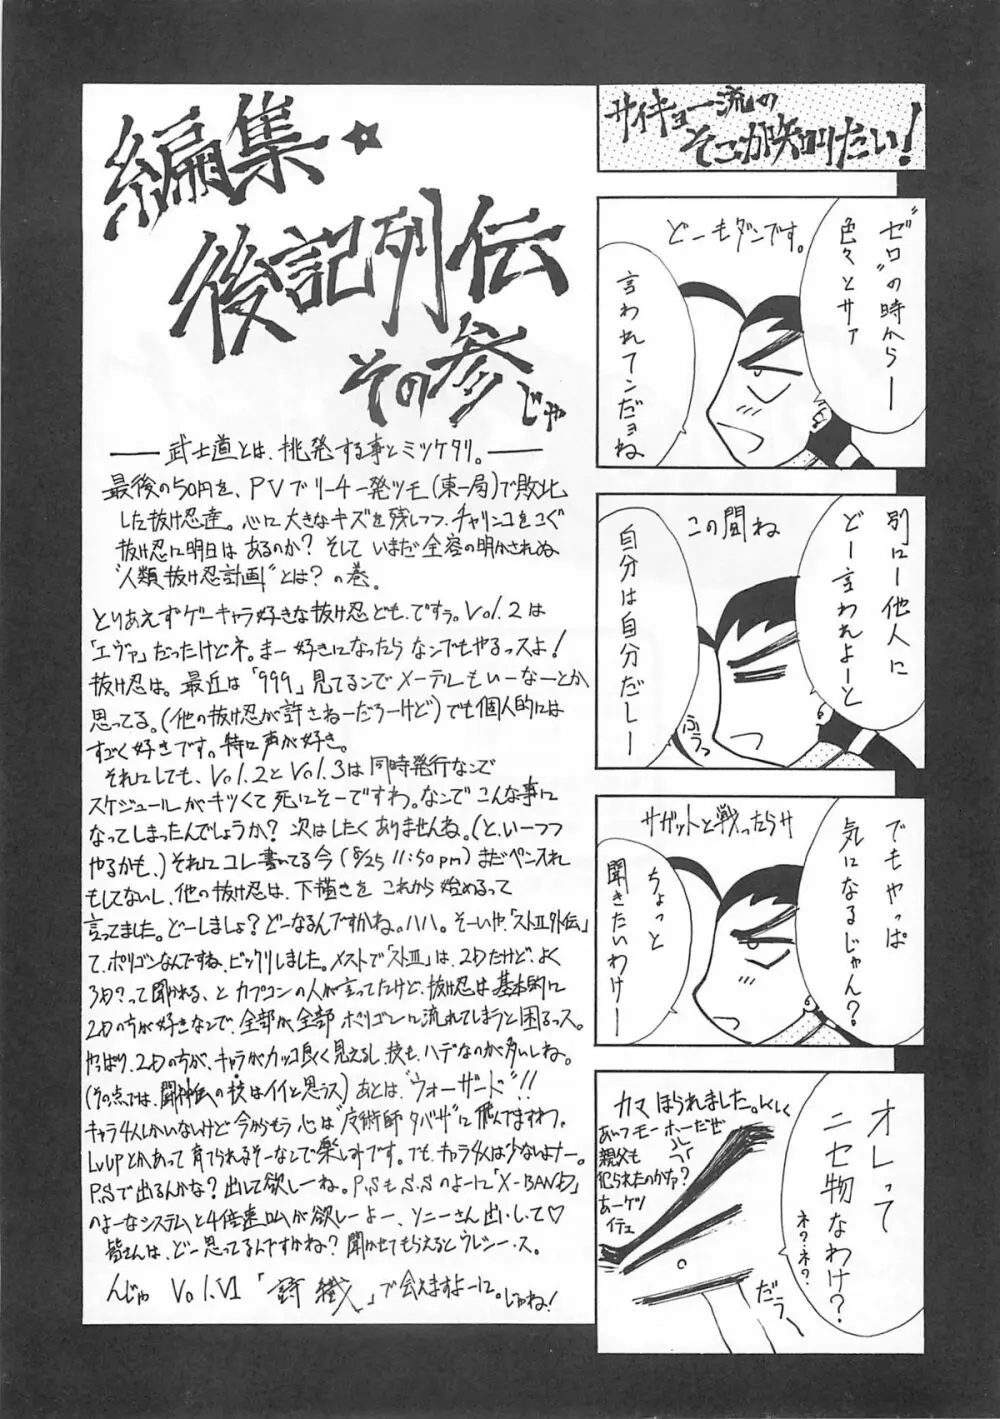 編集☆
後記列伝
その参じゃ
――武士道とは、挑発する事とミツケタリ。――
最後の50円を、PVでリーチ一発ツモ(東一局)で敗北
した抜け忍達。心に大きなキズを残しつつ、チャリンコをこぐ
抜け忍に明日はあるのか?そしていまだ全容の明かされぬ
"人類抜け忍計画"とは?の巻。
とりあえずゲーキャラ好きな抜け忍ども、ですぅ。Vol.2は
「エヴァ」だったけどネ。まー好きになったらなんでもやるっスよ!
抜け忍は。最近は「999」見てるんでメーテルもいーなーとか
思ってる。(他の抜け忍が許さねーだろーけど)でも個人的には
すごく好きです。特に声が好き。
それにしても、Vol.2とVol.3は同時発行なんで
スケジュールがキツくて死にそーですわ。なんでこんな事に
なってしまったんでしょうか?次はしたくありませんね。(と、いーつつ
やるかも、)それにコレ書いてる今(8/25 11:50pm)まだペン入れ
もしてないし、他の抜け忍は、下描きをこれから始めるって
言ってました。どーしましょ?どーなるんですかね。ハハ。そーいや、「ストⅡ外伝」
て、ポリゴンなんですね、ビックリしました。メストで「ストⅢ」は、2Dだけど、よく
3D?って聞かれる、とカプコンの人が言ってたけど、抜け忍は基本的に
2Dの方が好きなんで、全部が全部ポリゴンに流れてしまうと困るっス。
やっぱり2Dの方が、キャラがカッコ良く見えるし技も、ハデなのが多いしね。
(その点では、闘神伝の技はイイと思うっス)あとは、"ウォーザード"!!
キャラ4人しかいないけど今からもう心は"魔術師タバサ"に飛んでますわ。
LvUPとかあって育てられるそーなんで楽しみです。でも、キャラ4人は少ないよナー。
P.Sで出るんかな?出して欲しーね。P.SもS.Sのよーに「X-BAND」
のよーなシステムと4倍速ロムが欲しーよー、ソニーさん出して♡
皆さんは、どー思ってるんですかね?聞かせてもらえるとウレシース。
んじゃ Vol.VI「」で会えますよーに。じゃね!
サイキョー流の
そこが知りたい!
どーもダンです。
"ゼロ"の時からー
色々とサァ
言われてンだョね
この間ね
別にー他人に
どー言われよーと
自分は自分だしー
ふぅっ
サガットと戦ったらサ
でもやっぱ
気になるじゃん?
ちょっと
聞きたいわけー
カマほられました。しくしく
あいつモーホーだぜ
親父も
犯られたのかナァ?
あーケツ
イテェ
オレって
ニセ物なわけ?
ネ?ネ?
だぅー